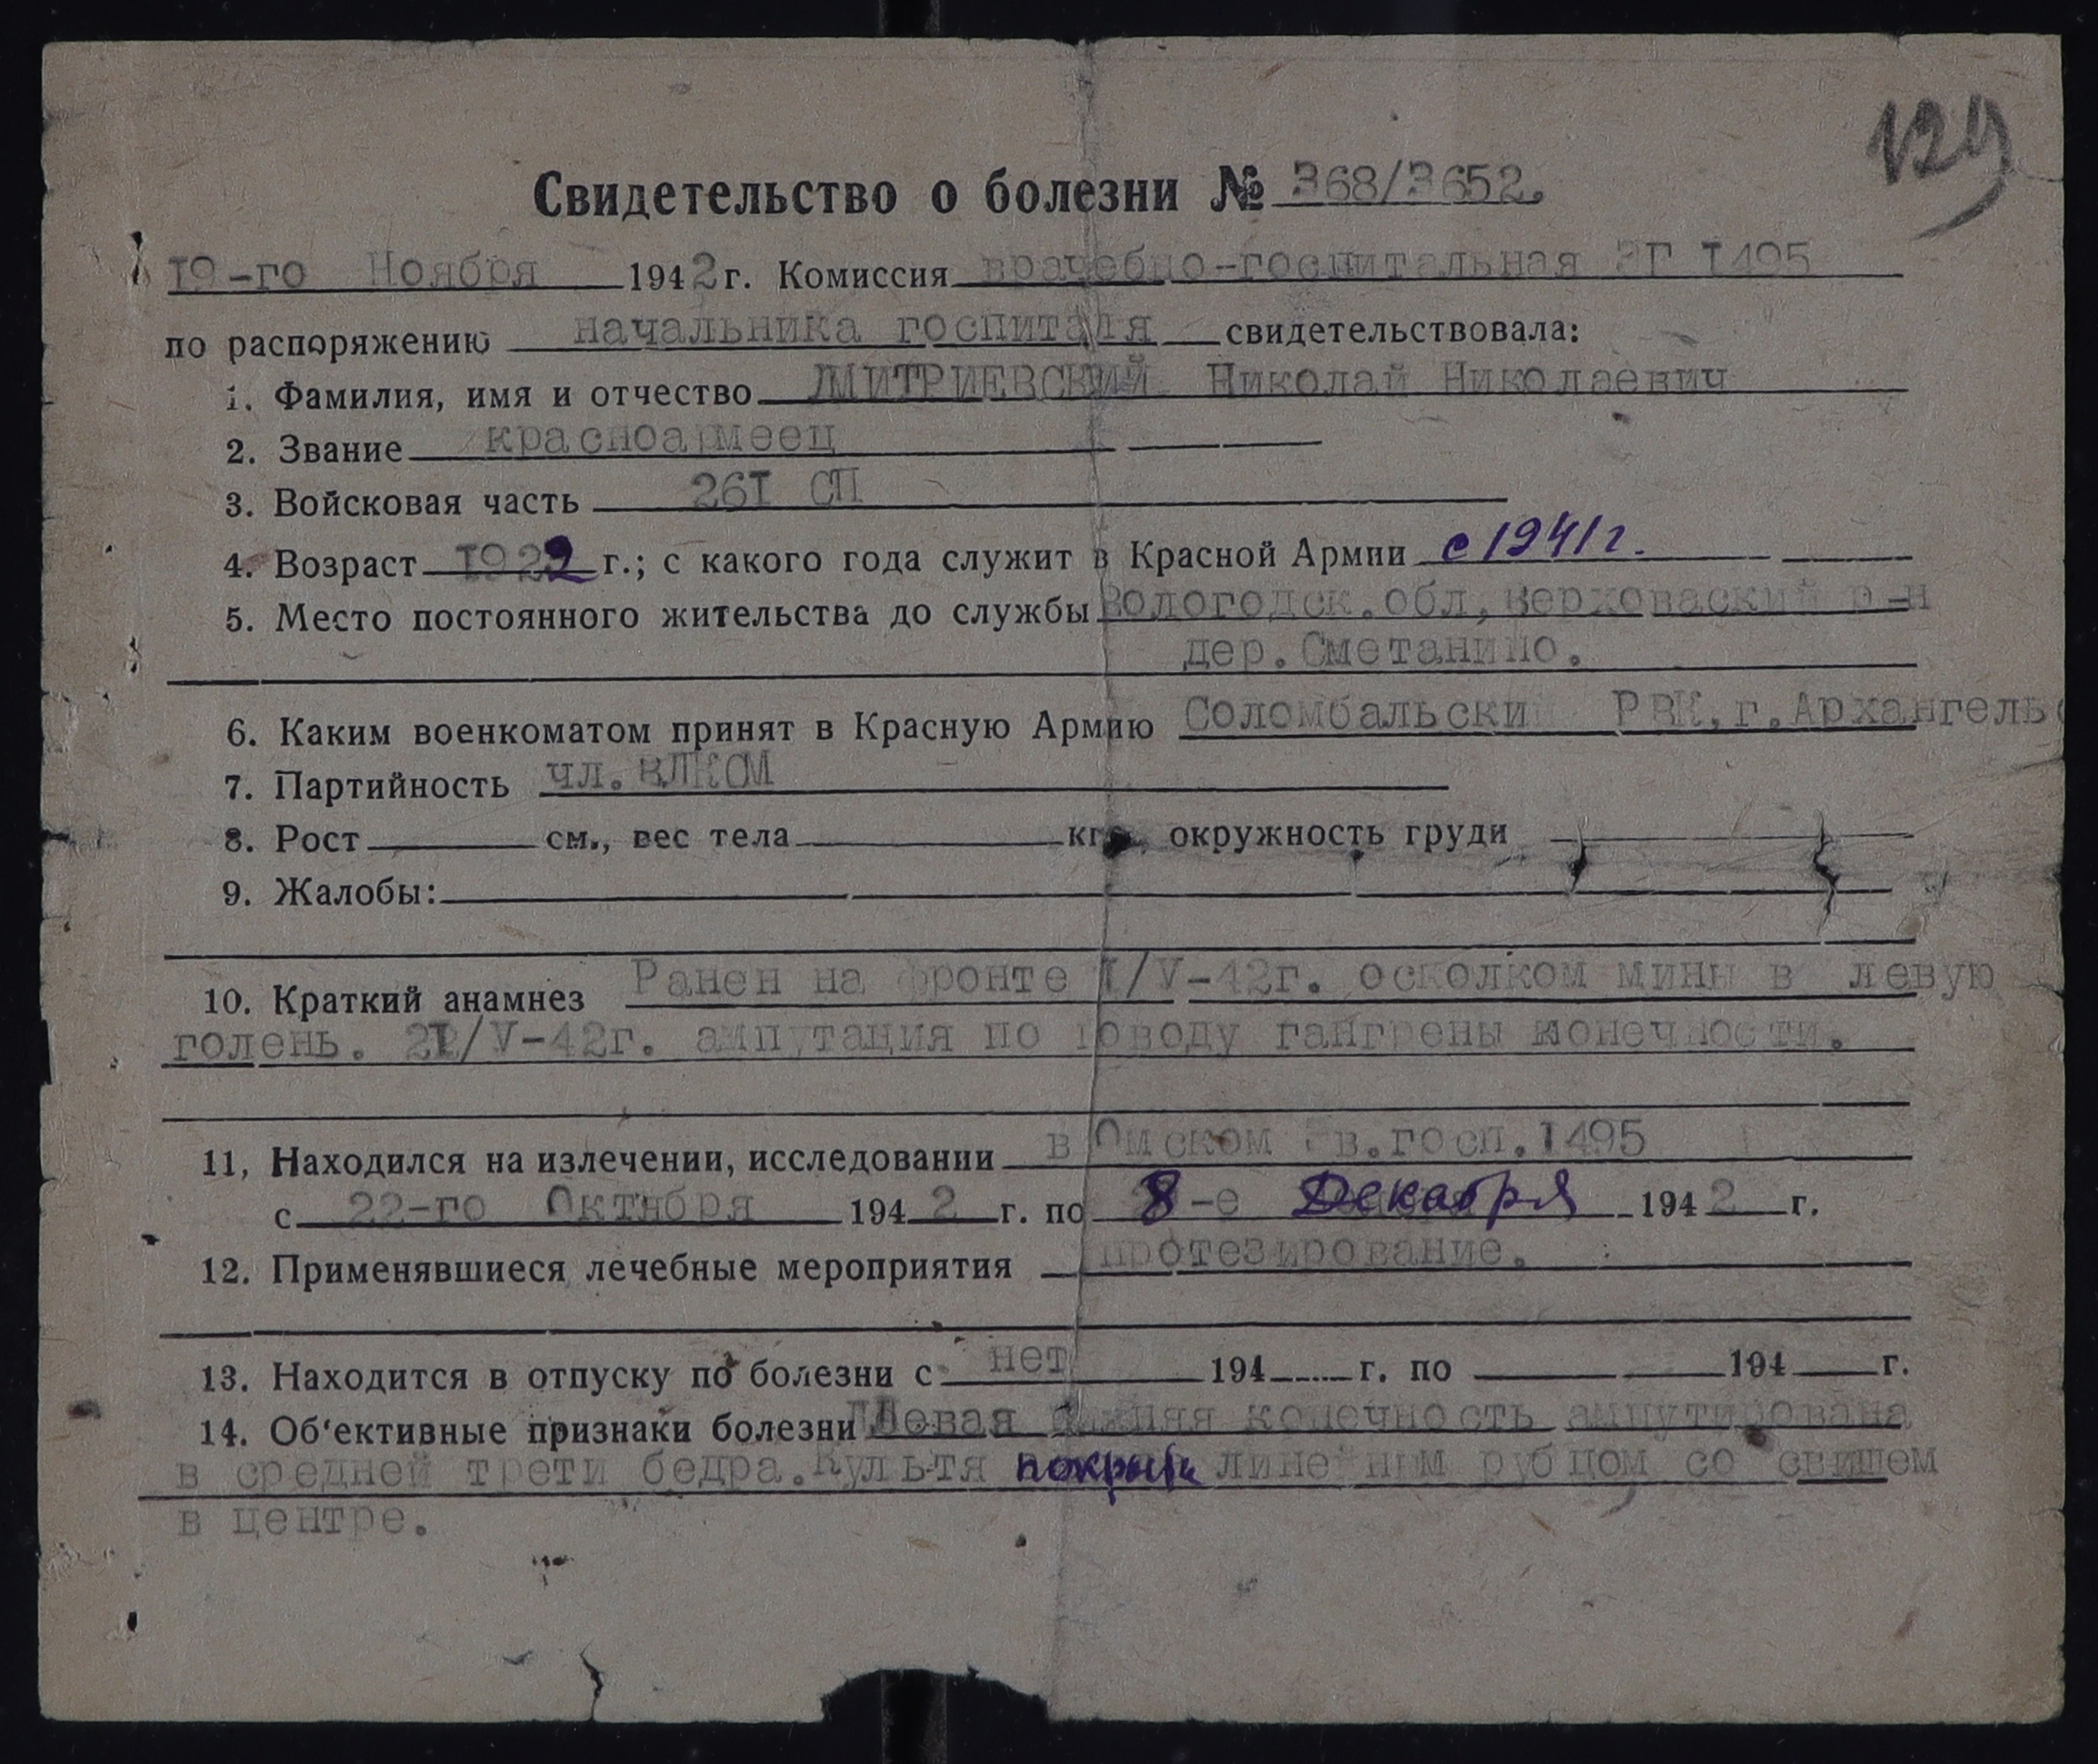 129
Свидетельство о болезни № 368/3652.
19-го Ноября 1942 г. Комиссия врачебно-госпитальная ЭГ 1495
по распоряжению начальника госпиталя свидетельствовала:
1. Фамилия, имя и отчество ДМИТРИЕВСКИЙ Николай Николаевич
2. Звание красноармеец
3. Войсковая часть 261 СП
4. Возраст 1922 г.; с какого года служит в Красной Армии с 1941 г.
5. Место постоянного жительства до службы Вологодск.обл, Верховаский р-н
дер. Сметанино.
6. Каким военкоматом принят в Красную Армию Соломбальский РВК, г. Архангельс
7. Партийность чл. ВЛКСМ
8. Рост см., вес тела кгр., окружность груди
9. Жалобы:
10. Краткий анамнез Ранен на фронте 1/V-42г. осколком мины в левую
голень. /V-42г. ампутация по поводу гангрены конечности.
11, Находился на излечении, исследовании в Омском эв.госп.1495
с 22-го Октября 1942 г. по 8-е Декабря 1942 г.
12. Применявшиеся лечебные мероприятия протезирование.
13. Находится в отпуску по болезни с нет 194 г. по 194 г.
14. Об'ективные признаки болезни Левая нижняя конечность ампутирована
в средней трети бедра. Культя покрыта линейным рубцом со свищем
в центре.